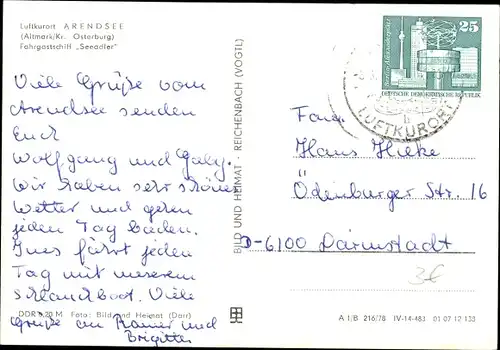 Luftkurort ARENDSEE
(Altmark/Kr. Osterburg)
Fahrgastschiff „Seeadler"
Viele Grüße vom
Arendsee senden
Euch
Wolfgang und Gaby.
Wir haben sehr schönes
Wetter und gehen
jeden Tag baden.
Ines fährt jeden
Tag mit unserem
Schlauchboot. Viele
Grüße an Rainer und
Brigitte
DDR 0,20 M Foto: Bild und Heimat (Darr)
BILD UND HEIMAT - REICHENBACH (VOGTL)
25
Berlin, Alexanderplatz
DEUTSCHE DEMOKRATISCHE REPUBLIK
b
LUFTKURORT
Fam.
Hans Hielke
Ödenburger Str. 16
D-6100 Darmstadt
3€
A 1/B 216/78 IV-14-483 01 07 12 135